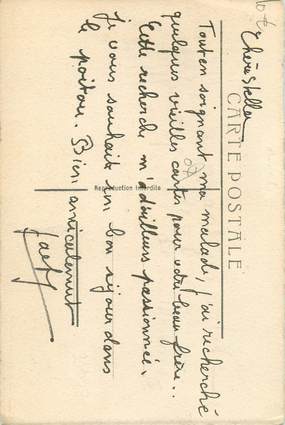 Chère Stella
Tout en soignant ma malade, j'ai recherché
quelques vieilles cartes pour votre beau frère..
Cette recherche m'a d'ailleurs passionnée.
Je vous souhaite un bon séjour dans
le poitou. Bien amicalement
CARTE POSTALE
Reproduction Interdite
07